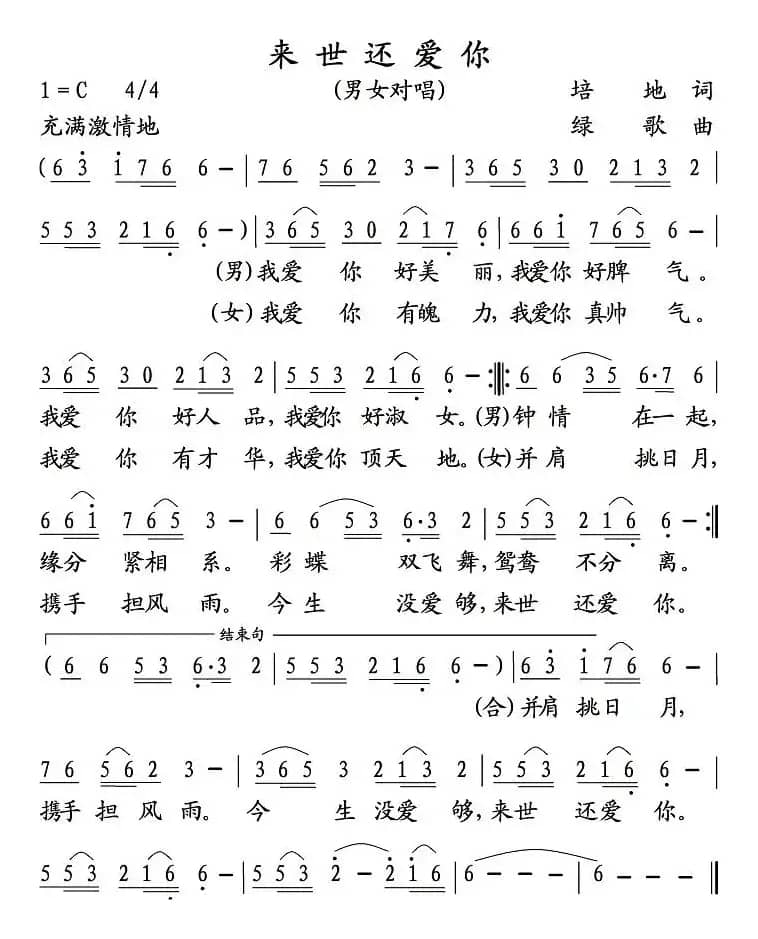 来世还爱你
1=C 4/4 (男女对唱) 培地词
充满激情地 绿歌曲
(6 3 1 7 6 6 - | 7 6 5 6 2 3 - | 3 6 5 3 0 2 1 3 2 |
5 5 3 2 1 6 6 - ) | 3 6 5 3 0 2 1 7 6 | 6 6 1 7 6 5 6 - |
(男)我爱你好美丽,我爱你好脾气。
(女)我爱你有魄力,我爱你真帅气。
3 6 5 3 0 2 1 3 2 | 5 5 3 2 1 6 6 - :||: 6 6 3 5 6·7 6 |
我爱你好人品,我爱你好淑女。(男)钟情在一起,
我爱你有才华,我爱你顶天地。(女)并肩挑日月,
6 6 1 7 6 5 3 - | 6 6 5 3 6·3 2 | 5 5 3 2 1 6 6 - :||
缘分紧相系。彩蝶双飞舞,鸳鸯不分离。
携手担风雨。今生没爱够,来世还爱你。
结束句
( 6 6 5 3 6·3 2 | 5 5 3 2 1 6 6 - ) | 6 3 1 7 6 6 - |
(合)并肩挑日月,
7 6 5 6 2 3 - | 3 6 5 3 2 1 3 2 | 5 5 3 2 1 6 6 - |
携手担风雨。今生没爱够,来世还爱你。
5 5 3 2 1 6 6 - | 5 5 3 2 - 2 1 6 | 6 - - - | 6 - - - ||